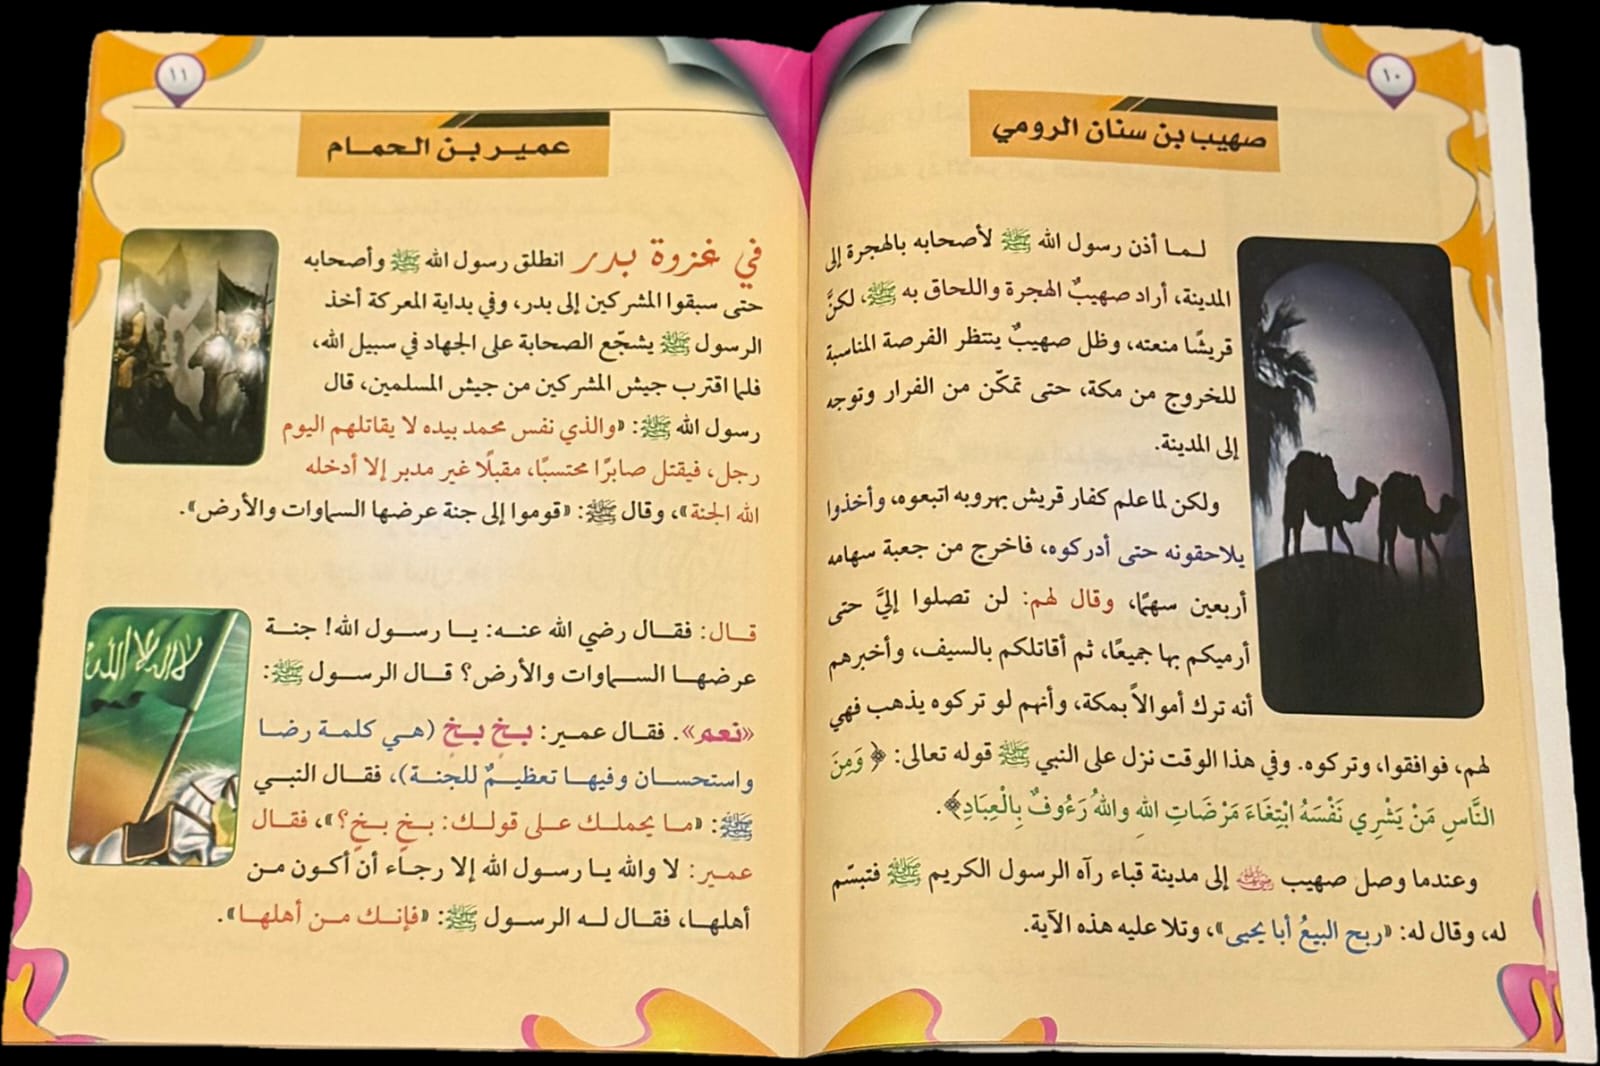 ١٠
صهيب بن سنان الرومي
لـمـا أذن رسول الله ﷺ لأصحابه بالهجرة إلى
المدينة، أراد صهيبٌ الهجرة واللحاق به ﷺ، لكنَّ
قريشًا منعته، وظل صهيبٌ ينتظر الفرصة المناسبة
للخروج من مكة، حتى تمكّن من الفرار وتوجه
إلى المدينة.
ولكن لما علم كفار قريش بهروبه اتبعوه، وأخذوا
يلاحقونه حتى أدركوه، فاخرج من جعبة سهامه
أربعين سهمًا، وقال لهم: لن تصلوا إليَّ حتى
أرميكم بها جميعًا، ثم أقاتلكم بالسيف، وأخبرهم
أنه ترك أموالاً بمكة، وأنهم لو تركوه يذهب فهي
لهم، فوافقوا، وتركوه. وفي هذا الوقت نزل على النبي ﷺ قوله تعالى: ﴿ وَمِنَ
النَّاسِ مَنْ يَشْرِي نَفْسَهُ ابْتِغَاءَ مَرْضَاتِ اللهِ واللهُ رَءُوفٌ بِالْعِبَادِ﴾.
وعندما وصل صهيب رضي الله عنه إلى مدينة قباء رآه الرسول الكريم ﷺ فتبسّم
له، وقال له: «ربح البيعُ أبا يحيى»، وتلا عليه هذه الآية.
١١
عمير بن الحمام
في غزوة بدر انطلق رسول الله ﷺ وأصحابه
حتى سبقوا المشركين إلى بدر، وفي بداية المعركة أخذ
الرسول ﷺ يشجّع الصحابة على الجهاد في سبيل الله،
فلما اقترب جيش المشركين من جيش المسلمين، قال
رسول الله ﷺ: «والذي نفس محمد بيده لا يقاتلهم اليوم
رجل، فيقتل صابرًا محتسبًا، مقبلًا غير مدبر إلا أدخله
الله الجنة»، وقال ﷺ: «قوموا إلى جنة عرضها السماوات والأرض».
قال: فقال رضي الله عنه: يا رسول الله! جنة
عرضها السماوات والأرض؟ قال الرسول ﷺ:
«نعم». فقال عمير: بخٍ بخٍ (هي كلمة رضا
واستحسان وفيها تعظيمٌ للجنة)، فقال النبي
ﷺ: «ما يحملك على قولك: بخٍ بخٍ؟»، فقال
عمير: لا والله يا رسول الله إلا رجاء أن أكون من
أهلها، فقال له الرسول ﷺ: «فإنك من أهلها».
لا إله إلا الله